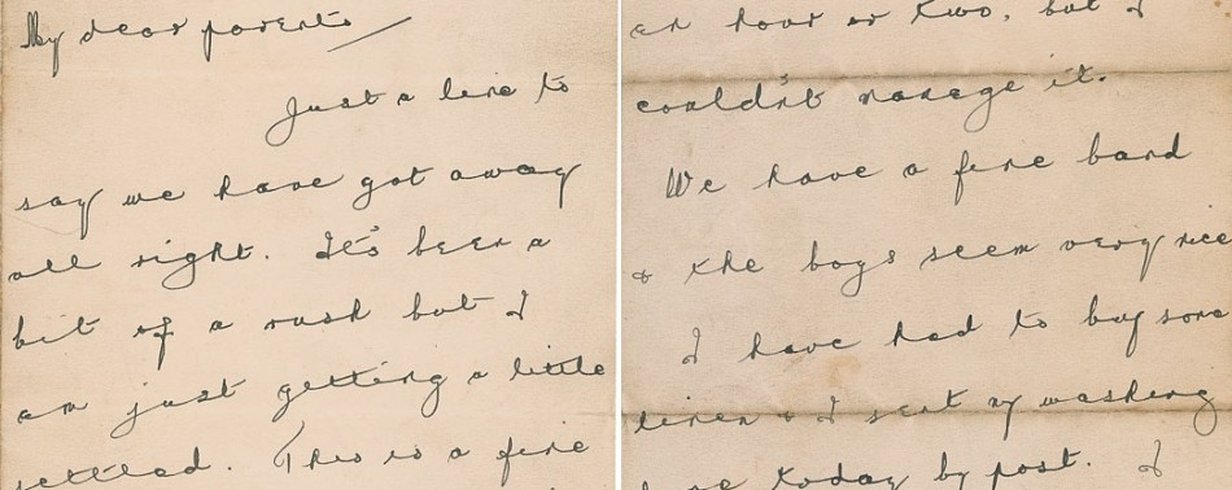 My dear parents
Just a line to
say we have got away
all right. It's been a
bit of a rush but I
am just getting a little
settled. This is a fine
an hour or two, but I
couldn't manage it.
We have a fine band
& the boys seem very nice
I have had to buy some
linen & I sent my washing
home today by post. I